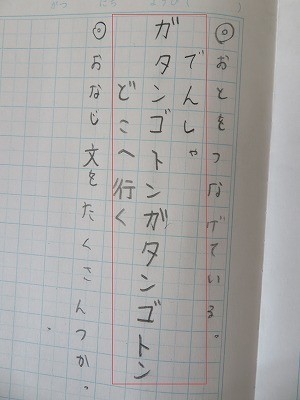 ◎おとをつなげている。
でんしゃ
ガタンゴトンガタンゴトン
どこへ行く
◎おなじ文をたくさんつか。